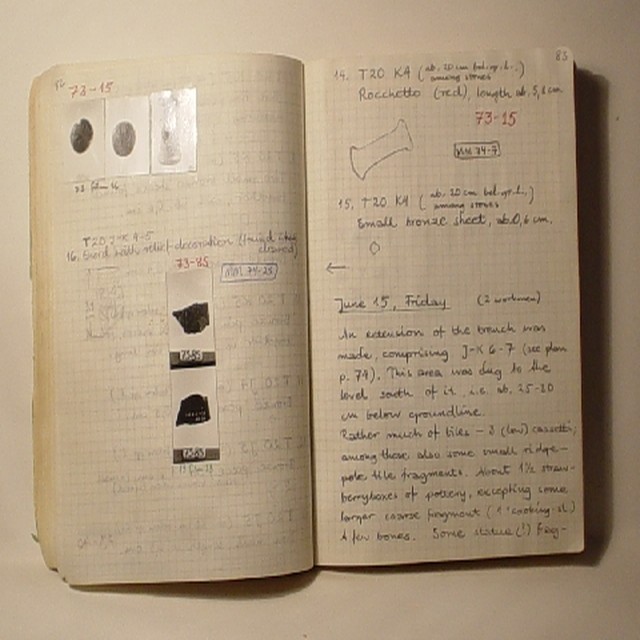 73-15
T20, J-K 4-5
16. Sherd with relief decoration (found when cleaned)
73-85
MM 74-25
73-85
73-85
83
14. T20 K4 (ab. 20 cm bel. gr. l., among stones
Rocchetto (red), length ab. 5,6 cm
73-15
MM 74-7
15. T20 K4 (ab. 20 cm bel. gr. l., among stones
Small bronze sheet, ab. 0,6 cm.
June 15, Friday (2 workmen)
An extension of the trench was
made, comprising J-K 6-7 (see plan
p. 74). This area was dug to the
level south of it, i.e. ab. 25-20
cm below groundline.
Rather much of tiles – 2 (low) cassetti;
among these also some small ridge-
pole tile fragments. About 1½ straw-
berryboxes of pottery, excepting some
larger coarse fragment (1 "cooking-st.)
A few bones. Some statue (!) frag-